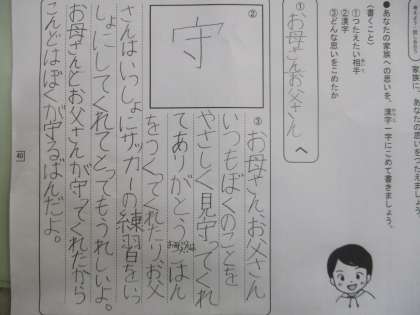 家族に、あなたの思いをつたえましょう。
●あなたの家族への思いを、漢字一字にこめて書きましょう。
〈書くこと〉
①つたえたい相手
②漢字
③どんな思いをこめたか
①
お母さんお父さん
へ
②
守
③
お母さんお父さん
いつもぼくのことを
やさしく見守ってくれ
てありがとう。ごはん
をつくってくれたり、お父
さんはいっしょにサッカーの練習をいっ
しょにしてくれてとってもうれしいよ。
お母さんとお父さんが守ってくれたから
こんどはぼくが守るばんだよ。
40